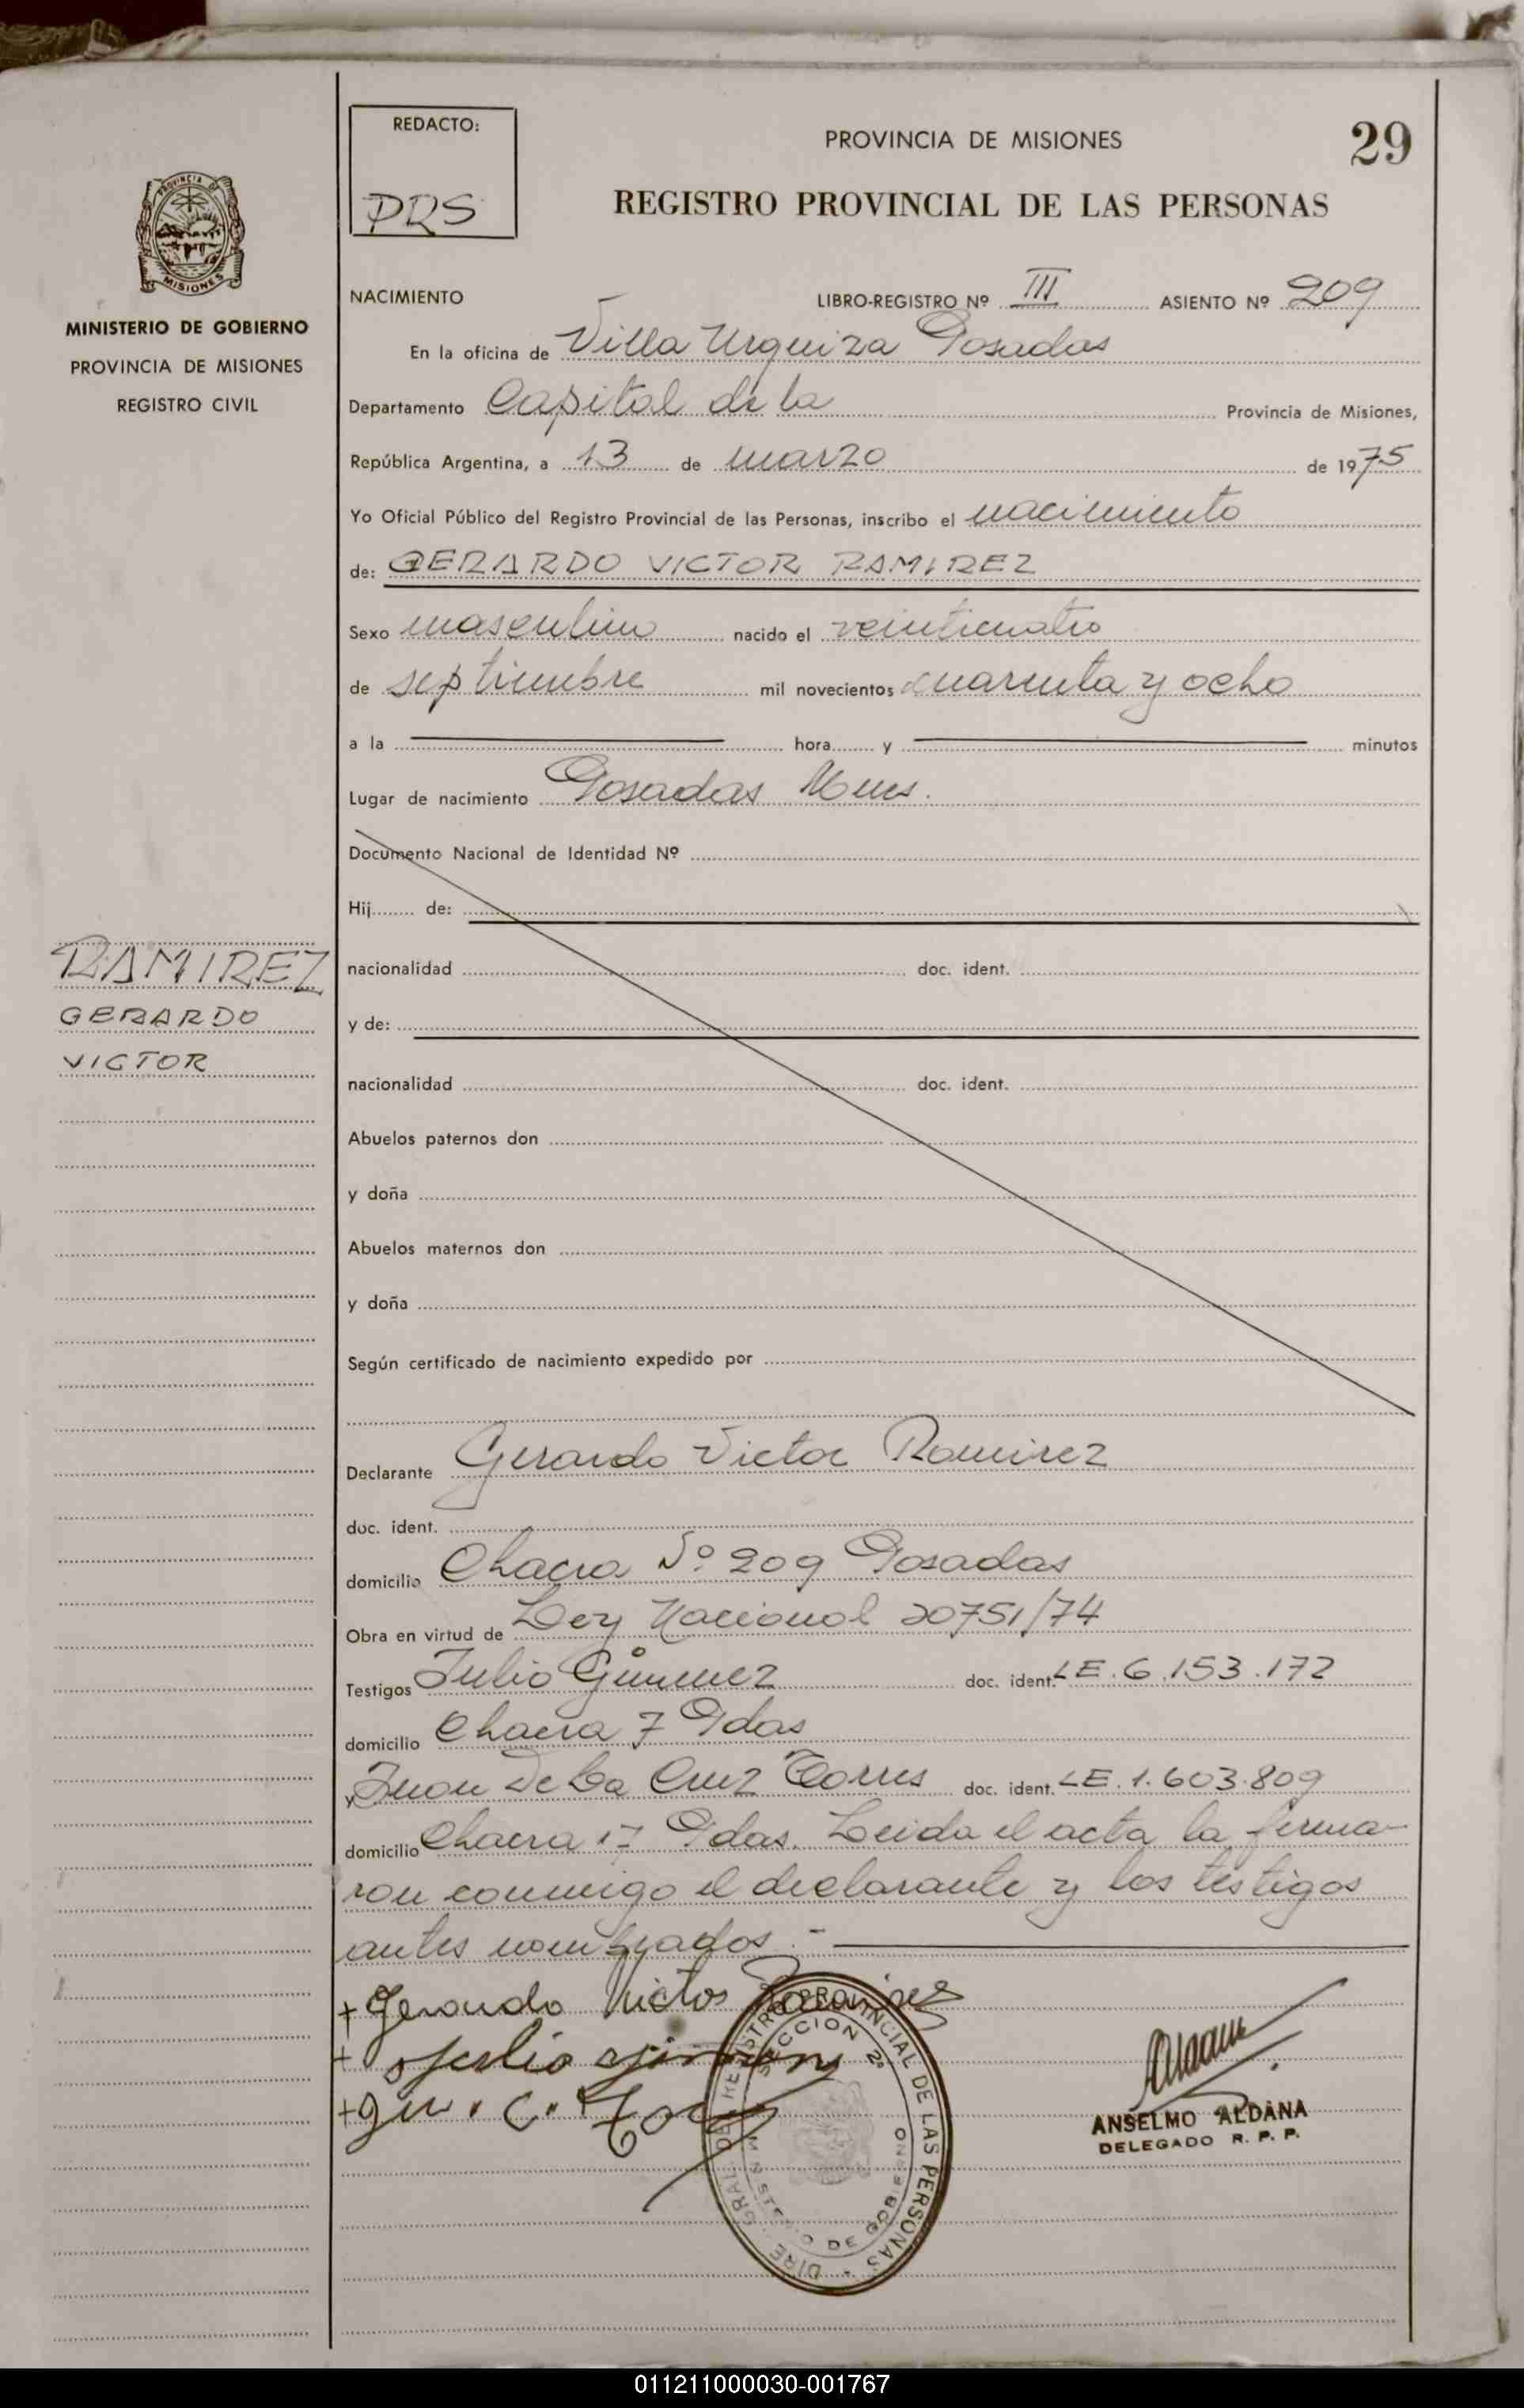 REDACTO:
PRS
PROVINCIA DE MISIONES
29
REGISTRO PROVINCIAL DE LAS PERSONAS
PROVINCIA DE
MISIONES
MINISTERIO DE GOBIERNO
PROVINCIA DE MISIONES
REGISTRO CIVIL
NACIMIENTO LIBRO-REGISTRO Nº III ASIENTO Nº 209
En la oficina de Villa Urquiza Posadas
Departamento Capital de la Provincia de Misiones,
República Argentina, a 13 de marzo de 1975
Yo Oficial Público del Registro Provincial de las Personas, inscribo el nacimiento
de: GERARDO VICTOR RAMIREZ
Sexo masculino nacido el veinticuatro
de septiembre mil novecientos cuarenta y ocho
a la hora y minutos
Lugar de nacimiento Posadas Mnes.
Documento Nacional de Identidad Nº
Hij de:
RAMIREZ
GERARDO
VICTOR
nacionalidad doc. ident.
y de:
nacionalidad doc. ident.
Abuelos paternos don
y doña
Abuelos maternos don
y doña
Según certificado de nacimiento expedido por
Declarante Gerardo Victor Ramirez
doc. ident.
domicilio Chacra Nº 209 Posadas
Obra en virtud de Ley Nacional 20751/74
Testigos Julio Gimenez doc. ident. LE. 6.153.172
domicilio Chacra 7 Pdas
y Juan De La Cruz Torres doc. ident. LE. 1.603.809
domicilio Chacra 17 Pdas. Leida el acta la firma-
ron conmigo el declarante y los testigos
antes nombrados.-
+ Gerardo Victor Ramirez
+ Julio Gimenez
+ Ju. C. Torres
DIRE GRAL. DEL REGISTRO PROVINCIAL DE LAS PERSONAS
SECCION 2ª
MINISTERIO DE GOBIERNO
ANSELMO ALDANA
DELEGADO R. P. P.
011211000030-001767